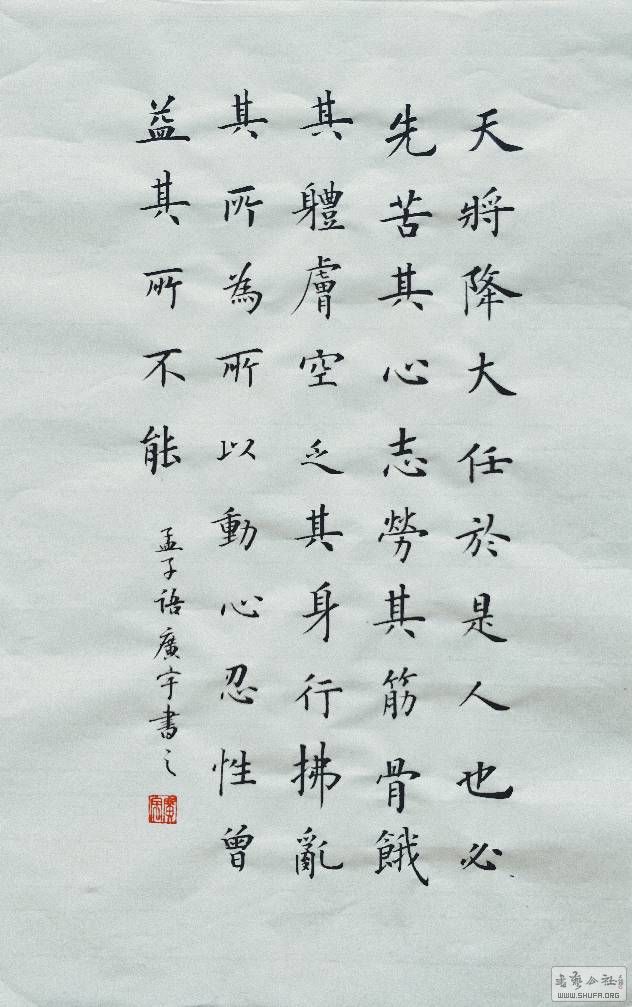 天將降大任於是人也必
先苦其心志勞其筋骨餓
其軆膚空乏其身行拂亂
其所為所以動心忍性曾
益其所不能
孟子語廣宇書之
WWW.SHUFA.ORG